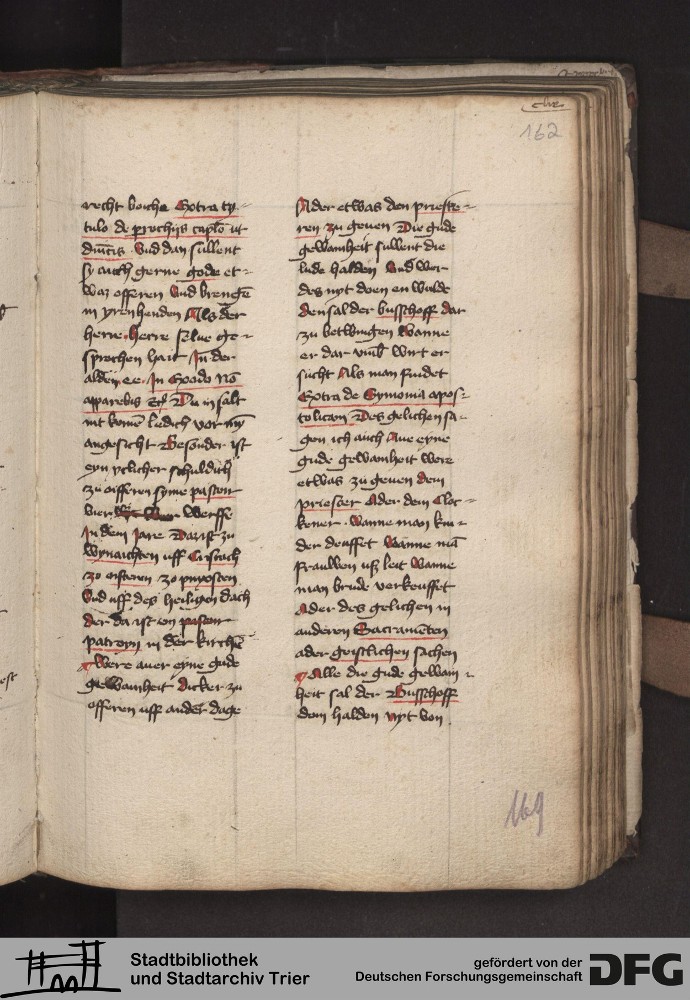 162
recht boiche Extra ty-
tulo de prochijs caplo ut
dnicis Vnd dan sullent
sy auch gerne gode et-
waz offeren Vnd brenge
in yren henden Als der
herre herre selue ge-
sprochen hait In der
alden ee In Exodo No
apparebis Etc Du insalt
nit kome ledich vor myn
angesicht Besonder ist
eyn yclicher schuldich
zu offeren syme pastoir
vier werffe
In dem Jare Daz ist zu
wynaichten uff Cristach
zo oisteren zo pinxsten
Vnd uff des heiligen dach
der da ist ein pastoir
patroyn in der kirche
Were auer eyne gude
gewanheit dicker zu
offeren uff ander dage
Ader etwas den prieste-
ren zu geuen Die gude
gewanheit sullent die
lude halden Vnd wor-
des nyt doen en wulde
den sal der busschoff dar
zu betwingen Wanne
er dar vmb wirt er
sucht Als man findet
Extra de Symonia apos-
tolicam Des gelichen sa-
gen ich auch Aue eyne
gude gewanheit were
etwas zu geuen dem
priester Ader dem Cloc-
kener Wanne man kin-
der deuffet Wanne ma
frauwen uß leit Wanne
man brude verkeuffet
Ader des gelichen in
anderen Sacramenten
ader geistlichen sachen
Alle die gude gewan-
heit sal der Busschoff
dom halden nyt von
169
Stadtbibliothek
und Stadtarchiv Trier
gefördert von der
Deutschen Forschungsgemeinschaft
DFG